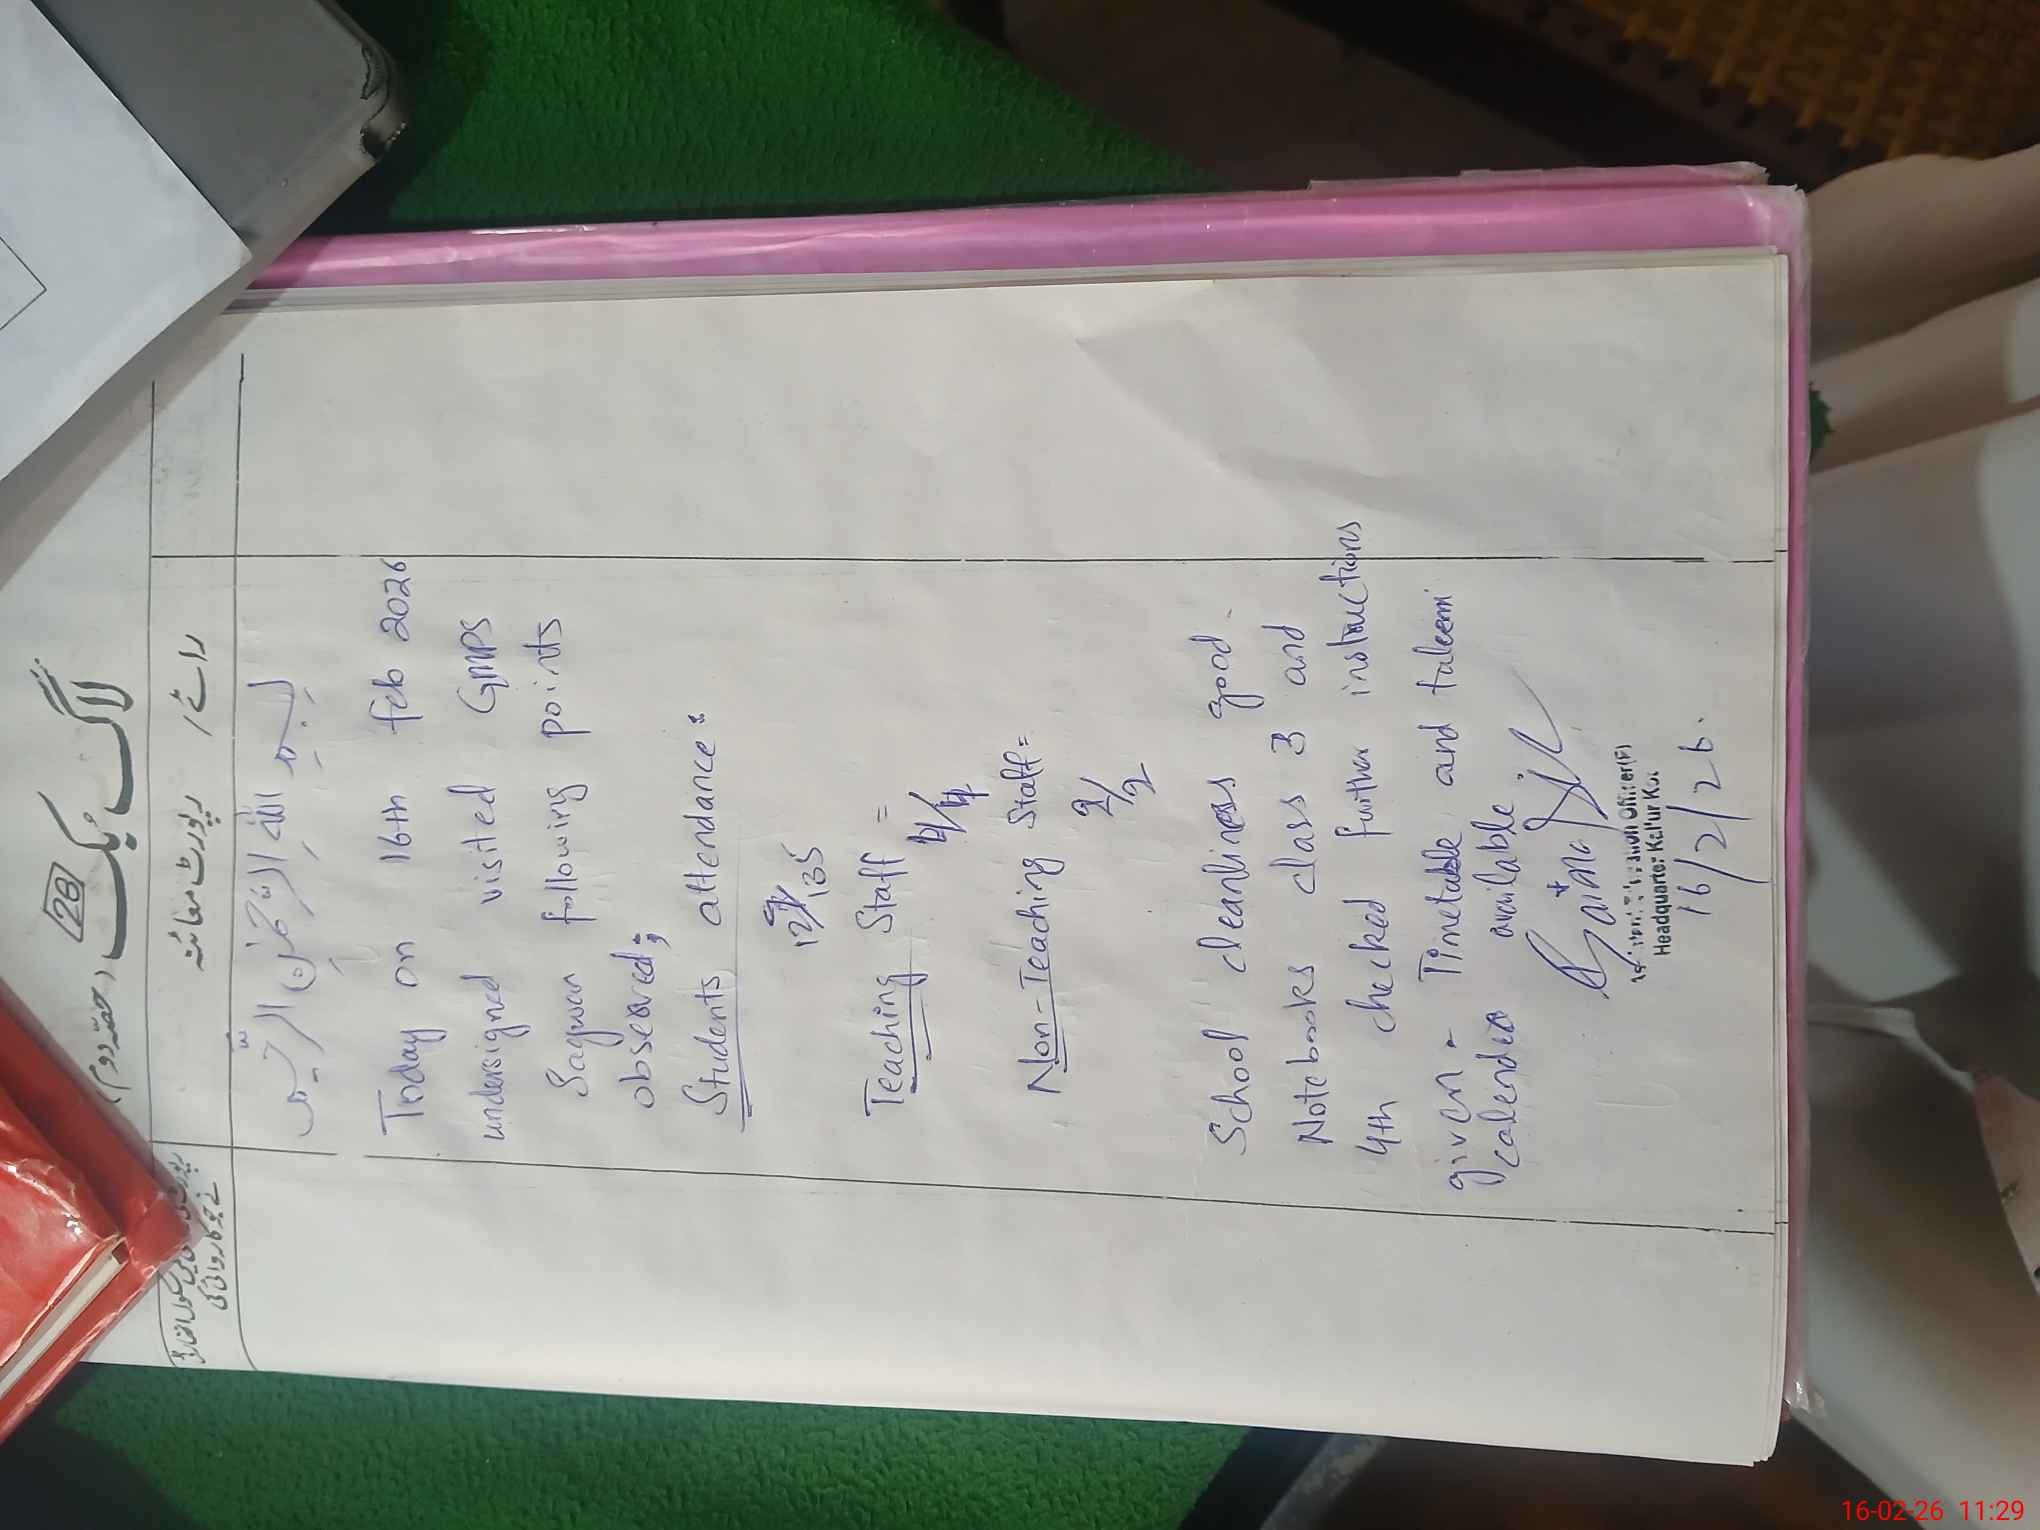 28
لاگ بک (حصّہ دوم)
رپورٹ معائنہ / رائے
نے جو کاروائی کی
بسم اللہ الرحمٰن الرحیم
Today on 16th feb 2026
undersigned visited GMPS
Sagwan following points
observed;
Students attendance:
129/135
Teaching Staff =
4/4
Non-Teaching Staff=
2/2
School cleanliness good.
Notebooks class 3 and
4th checked further instructions
given. Timetable and taleemi
calender available
Officer(F)
Headquarter Kallur Kot
16/2/26.
16-02-26 11:29